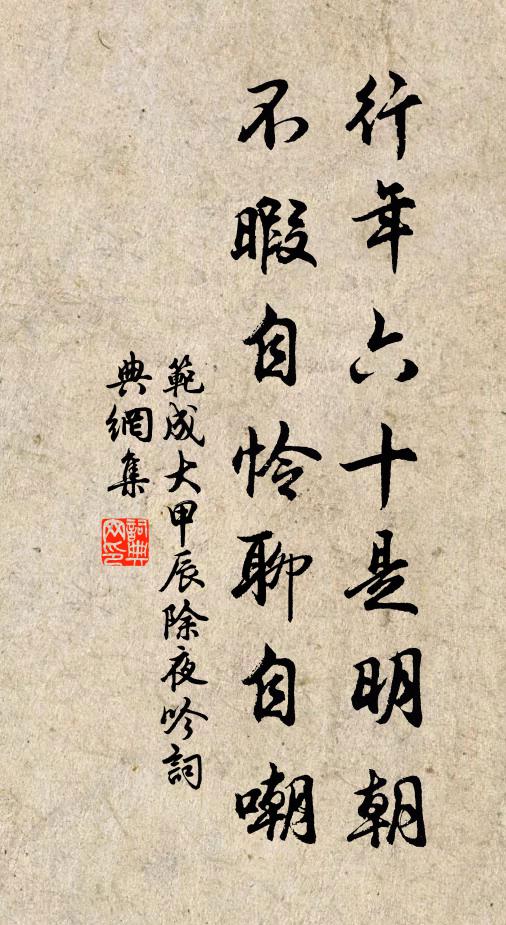 行年六十是明朝
不暇自怜聊自嘲
範成大甲辰除夜吟詞
典網集
詞典網印